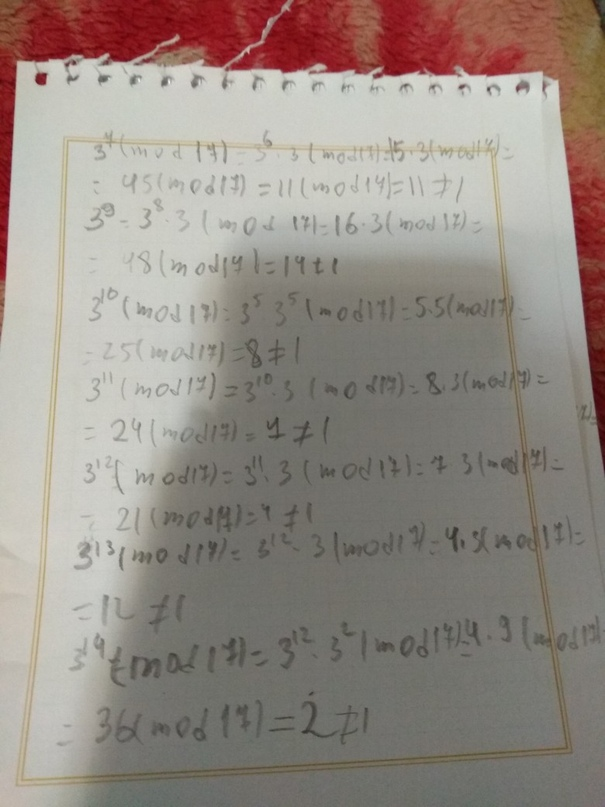 3⁷(mod 17) = 3⁶·3(mod17)=15·3(mod17)=
= 45(mod17) = 11(mod17)=11≠1
3⁹ = 3⁸·3(mod 17)=16·3(mod17)=
= 48(mod17)=14≠1
3¹⁰(mod17)=3⁵ 3⁵(mod17)=5.5(mod17)=
=25(mod17)=8≠1
3¹¹(mod17)=3¹⁰·3 (mod17)=8.3(mod17)=
= 24(mod17)=7≠1
3¹²(mod17)=3¹¹·3(mod17)=7 3(mod17)=
= 21(mod17)=4≠1
3¹³(mod17)= 3¹²·3(mod17)=4.3(mod17)=
=12≠1
3¹⁴(mod17)=3¹²·3²(mod17)=4·9(mod17)
= 36(mod17)=2≠1